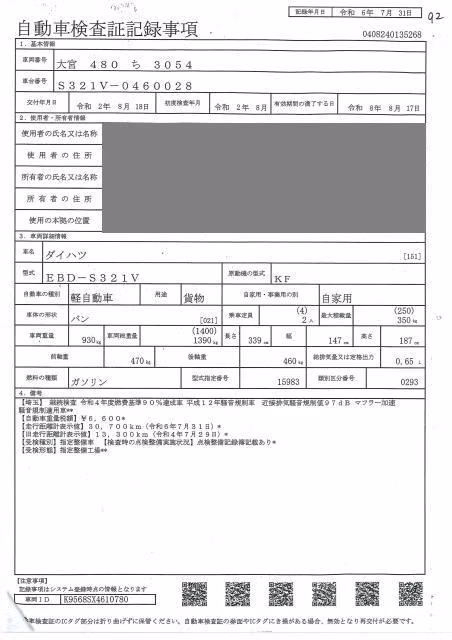 記録年月日 令和 6年 7月 31日
92
自動車検査証記録事項
0408240135268
1. 基本情報
車両番号 大宮 480 ち 3054
車台番号 S321V-0460028
交付年月日 令和 2年 8月 18日 初度検査年月 令和 2年 8月 有効期間の満了する日 令和 8年 8月 17日
2. 使用者・所有者情報
使用者の氏名又は名称
使用者の住所
所有者の氏名又は名称
所有者の住所
使用の本拠の位置
3. 車両詳細情報
車名 ダイハツ [151]
型式 EBD-S321V 原動機の型式 KF
自動車の種別 軽自動車 用途 貨物 自家用・事業用の別 自家用
車体の形状 バン [021] 乗車定員 (4) 2人 最大積載量 (250) 350kg
車両重量 930kg 車両総重量 (1400) 1390kg 長さ 339cm 幅 147cm 高さ 187cm
前軸重 470kg 後軸重 460kg 総排気量又は定格出力 0.65L
燃料の種類 ガソリン 型式指定番号 15983 類別区分番号 0293
4. 備考
【埼玉】 継続検査 令和4年度燃費基準90%達成車 平成12年騒音規制車 近接排気騒音規制値97dB マフラー加速
騒音規制適用車**
【自動車重量税額】¥6,600*
【走行距離計表示値】30,700km(令和6年7月31日)*
【旧走行距離計表示値】13,300km(令和4年7月29日)*
【受検種別】指定整備車 【検査時の点検整備実施状況】点検整備記録簿記載あり*
【受検形態】指定整備工場**
【注意事項】
記録事項はシステム登録時点の情報となります
車両ID K9568SX4610780
動車検査証のICタグ部分は折り曲げずに保管ください。自動車検査証の券面やICタグにき損がある場合、無効となり再交付が必要です。